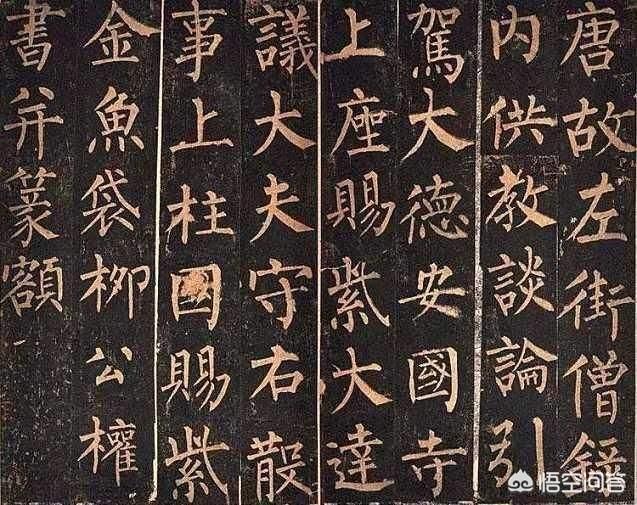 唐故左街僧錄
內供教談論引
駕大德安國寺
上座賜紫大達
議大夫守右散
事上柱國賜紫
金魚袋柳公權
書并篆額
悟空问答